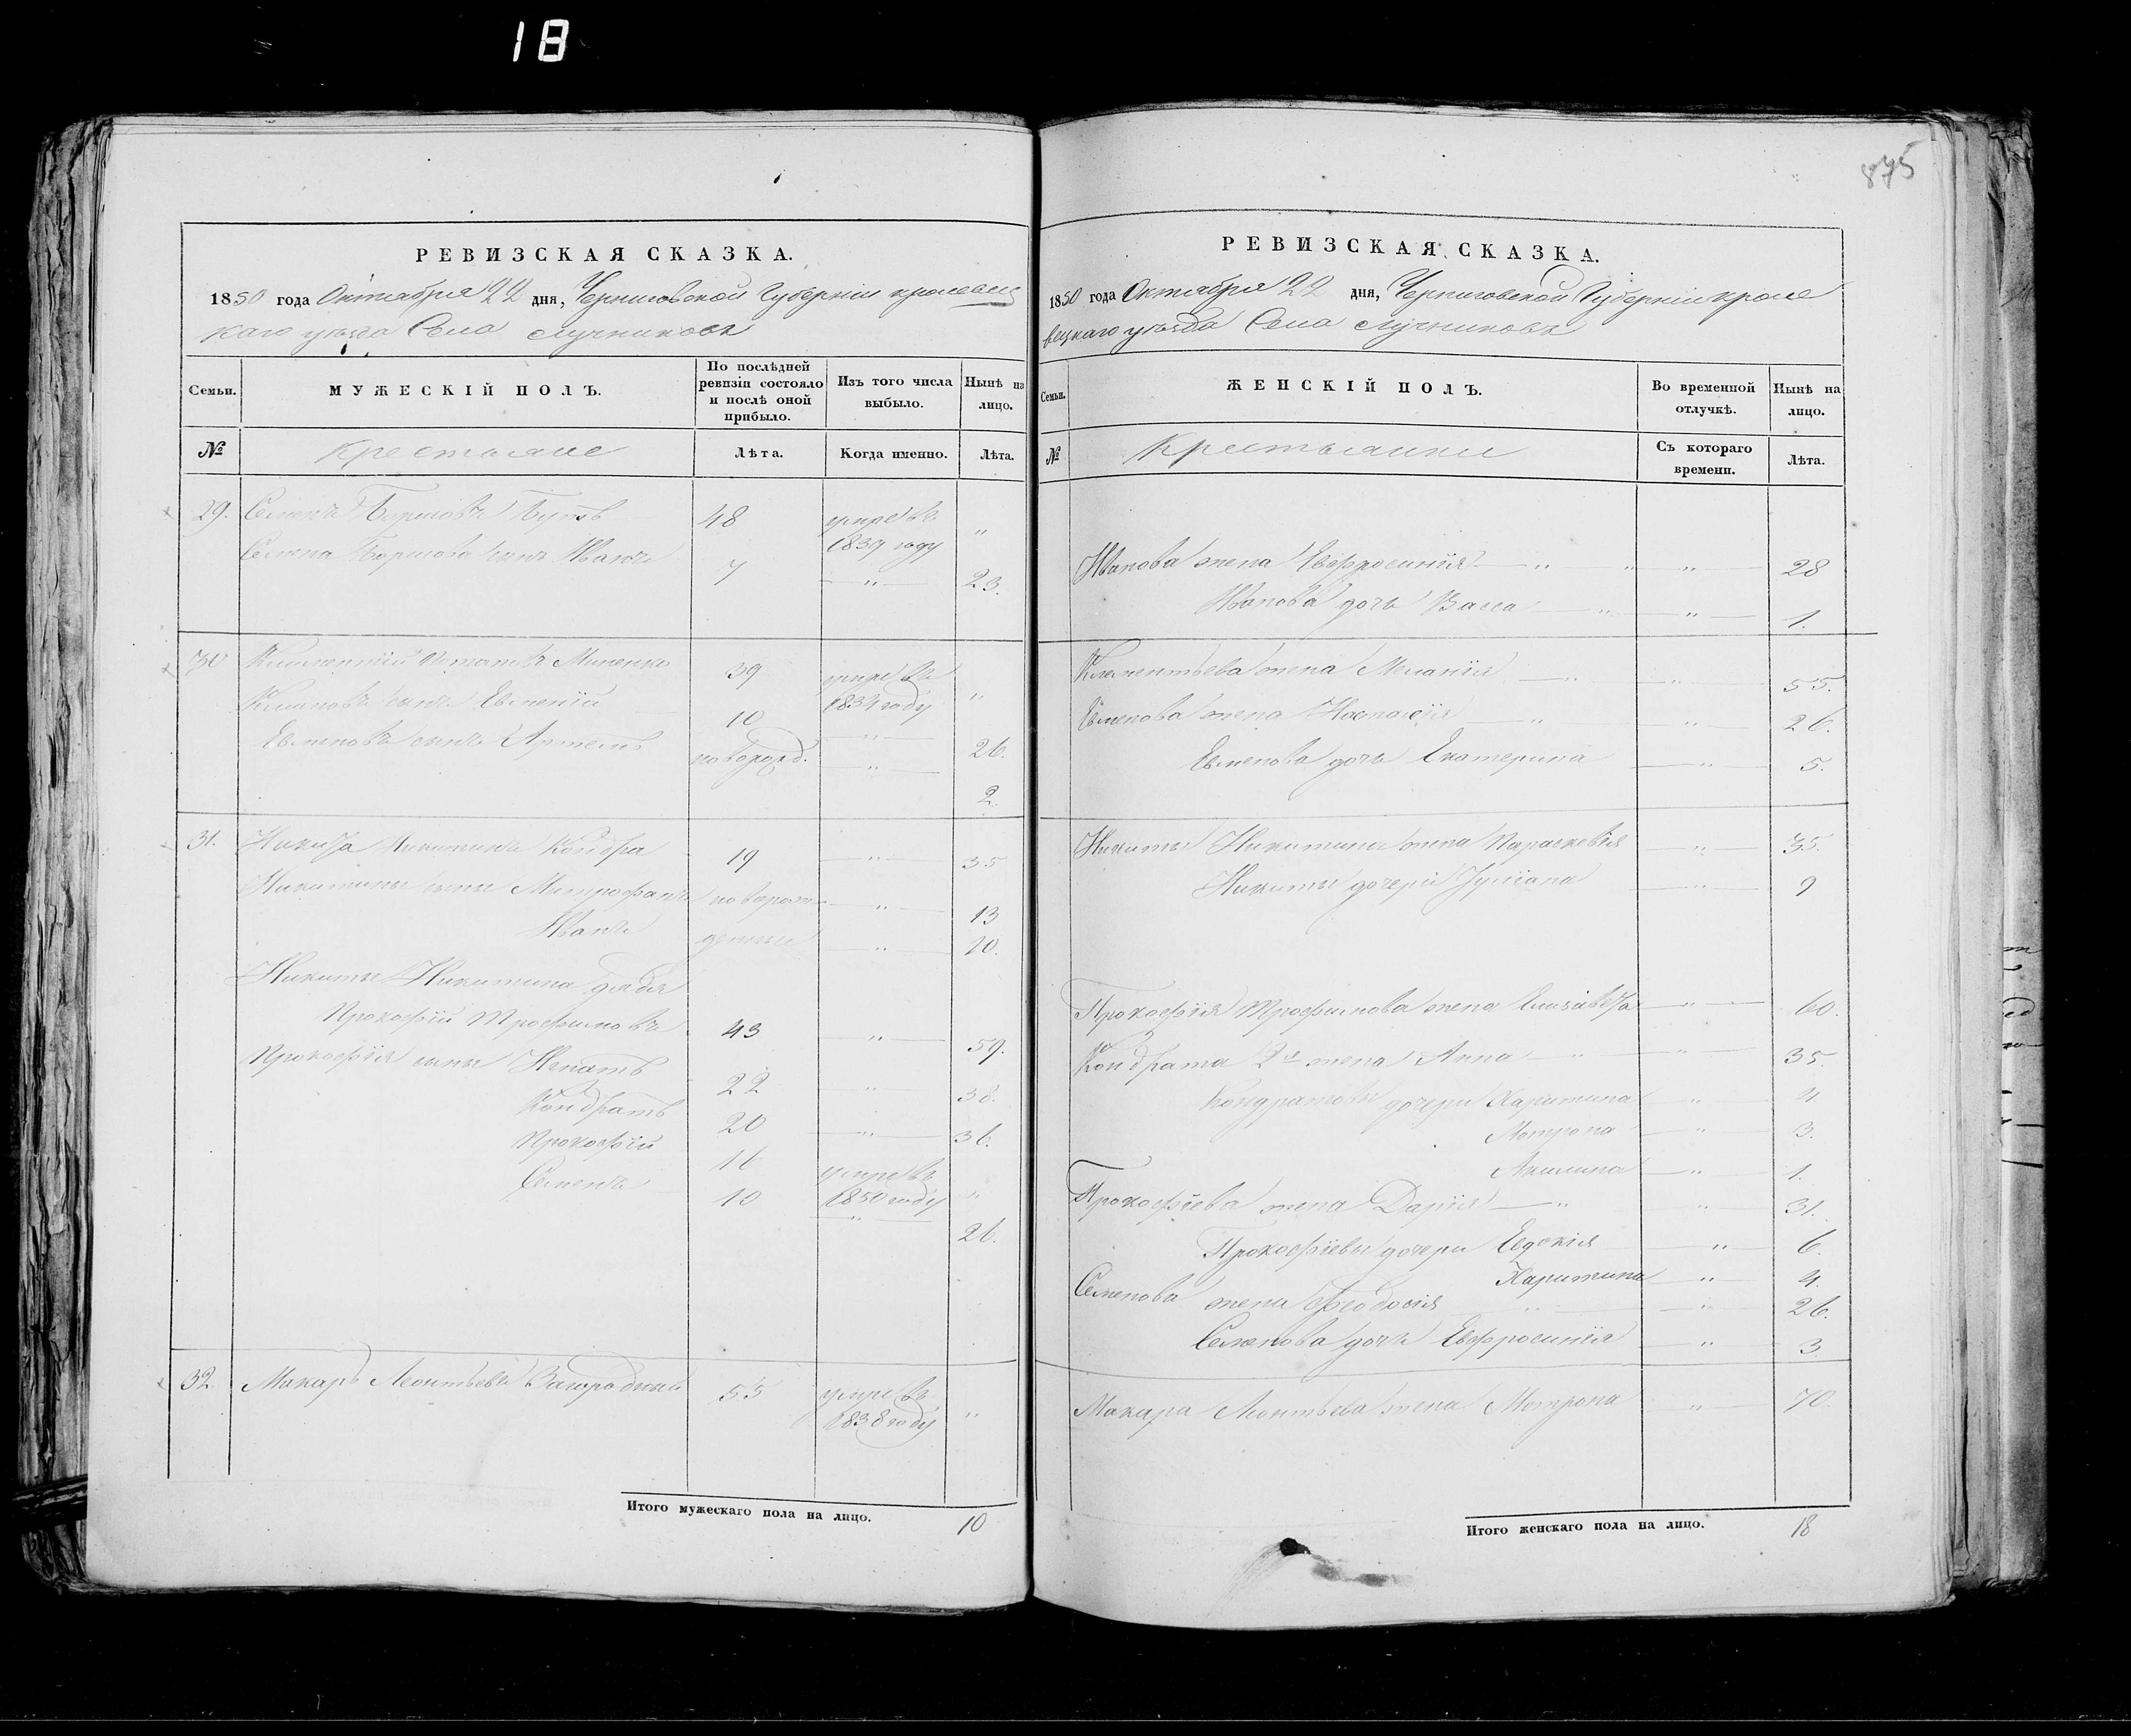 18
875
РЕВИЗСКАЯ СКАЗКА.
1850 года Октября 22 дня, Черниговской Губерніи кролевец
каго уѣзда Села Лучниковъ
Семьи.
МУЖЕСКІЙ ПОЛЪ.
По послѣдней ревизіи состояло и послѣ оной прибыло.
Изъ того числа выбыло.
Нынѣ на лицо.
№
Крестьяне
Лѣта.
Когда именно.
Лѣта.
29. Семенъ Борисовъ 48 умре въ 1839 году "
Семена Борисова сынъ Иванъ 7 " 23.
30 Климентій Потаповъ Миненко 39 умре въ 1834 году "
Климовъ сынъ Евменій 10 " 26.
Евменовъ сынъ Артемъ новорожд. " 2.
31. Никита Никитинъ Кондра 19 " 35
Никитины сыны Митрофанъ новорож " 13
Иванъ денные " 10.
Никиты Никитина дядя
Прокофій Трофимовъ 43 " 59.
Прокофія сыны Игнатъ 22 " 38.
Кондратъ 20 " 36.
Прокофій 16 умре въ 1850 году "
Семенъ 10 " 26.
32. Макаръ Леонтьевъ 55 умре въ 1838 году "
Итого мужескаго пола на лицо. 10
РЕВИЗСКАЯ СКАЗКА.
1850 года Октября 22 дня, Черниговской Губерніи кроле
вецкаго уѣзда Села Лучниковъ
Семьи.
ЖЕНСКІЙ ПОЛЪ.
Во временной отлучкѣ.
Нынѣ на лицо.
№
Крестьянки
Съ котораго времени.
Лѣта.
Иванова жена Евфросинія " " " 28
Иванова дочь Васса " " 1.
Климентьева жена Меланія " " 55.
Евменова жена Настасія " " 26.
Евменова дочь Екатерина " 5.
Никиты Никитина жена Параскевія " 35.
Никиты дочери Іуліана " 9
Прокофія Трофимова жена Елизавета " 60.
Кондрата 2я жена Анна " " 35.
Кондратовы дочери Харитина " 4
Мотрона " 3.
Акилина " 1.
Прокофіева жена Дарія " " 31.
Прокофіевы дочери Евдокія " 6.
Харитина " 4.
Семенова жена Феодосія " " 26.
Семенова дочь Евфросинія " 3
Макара Леонтьева жена Мотрона " 70.
Итого женскаго пола на лицо. 18